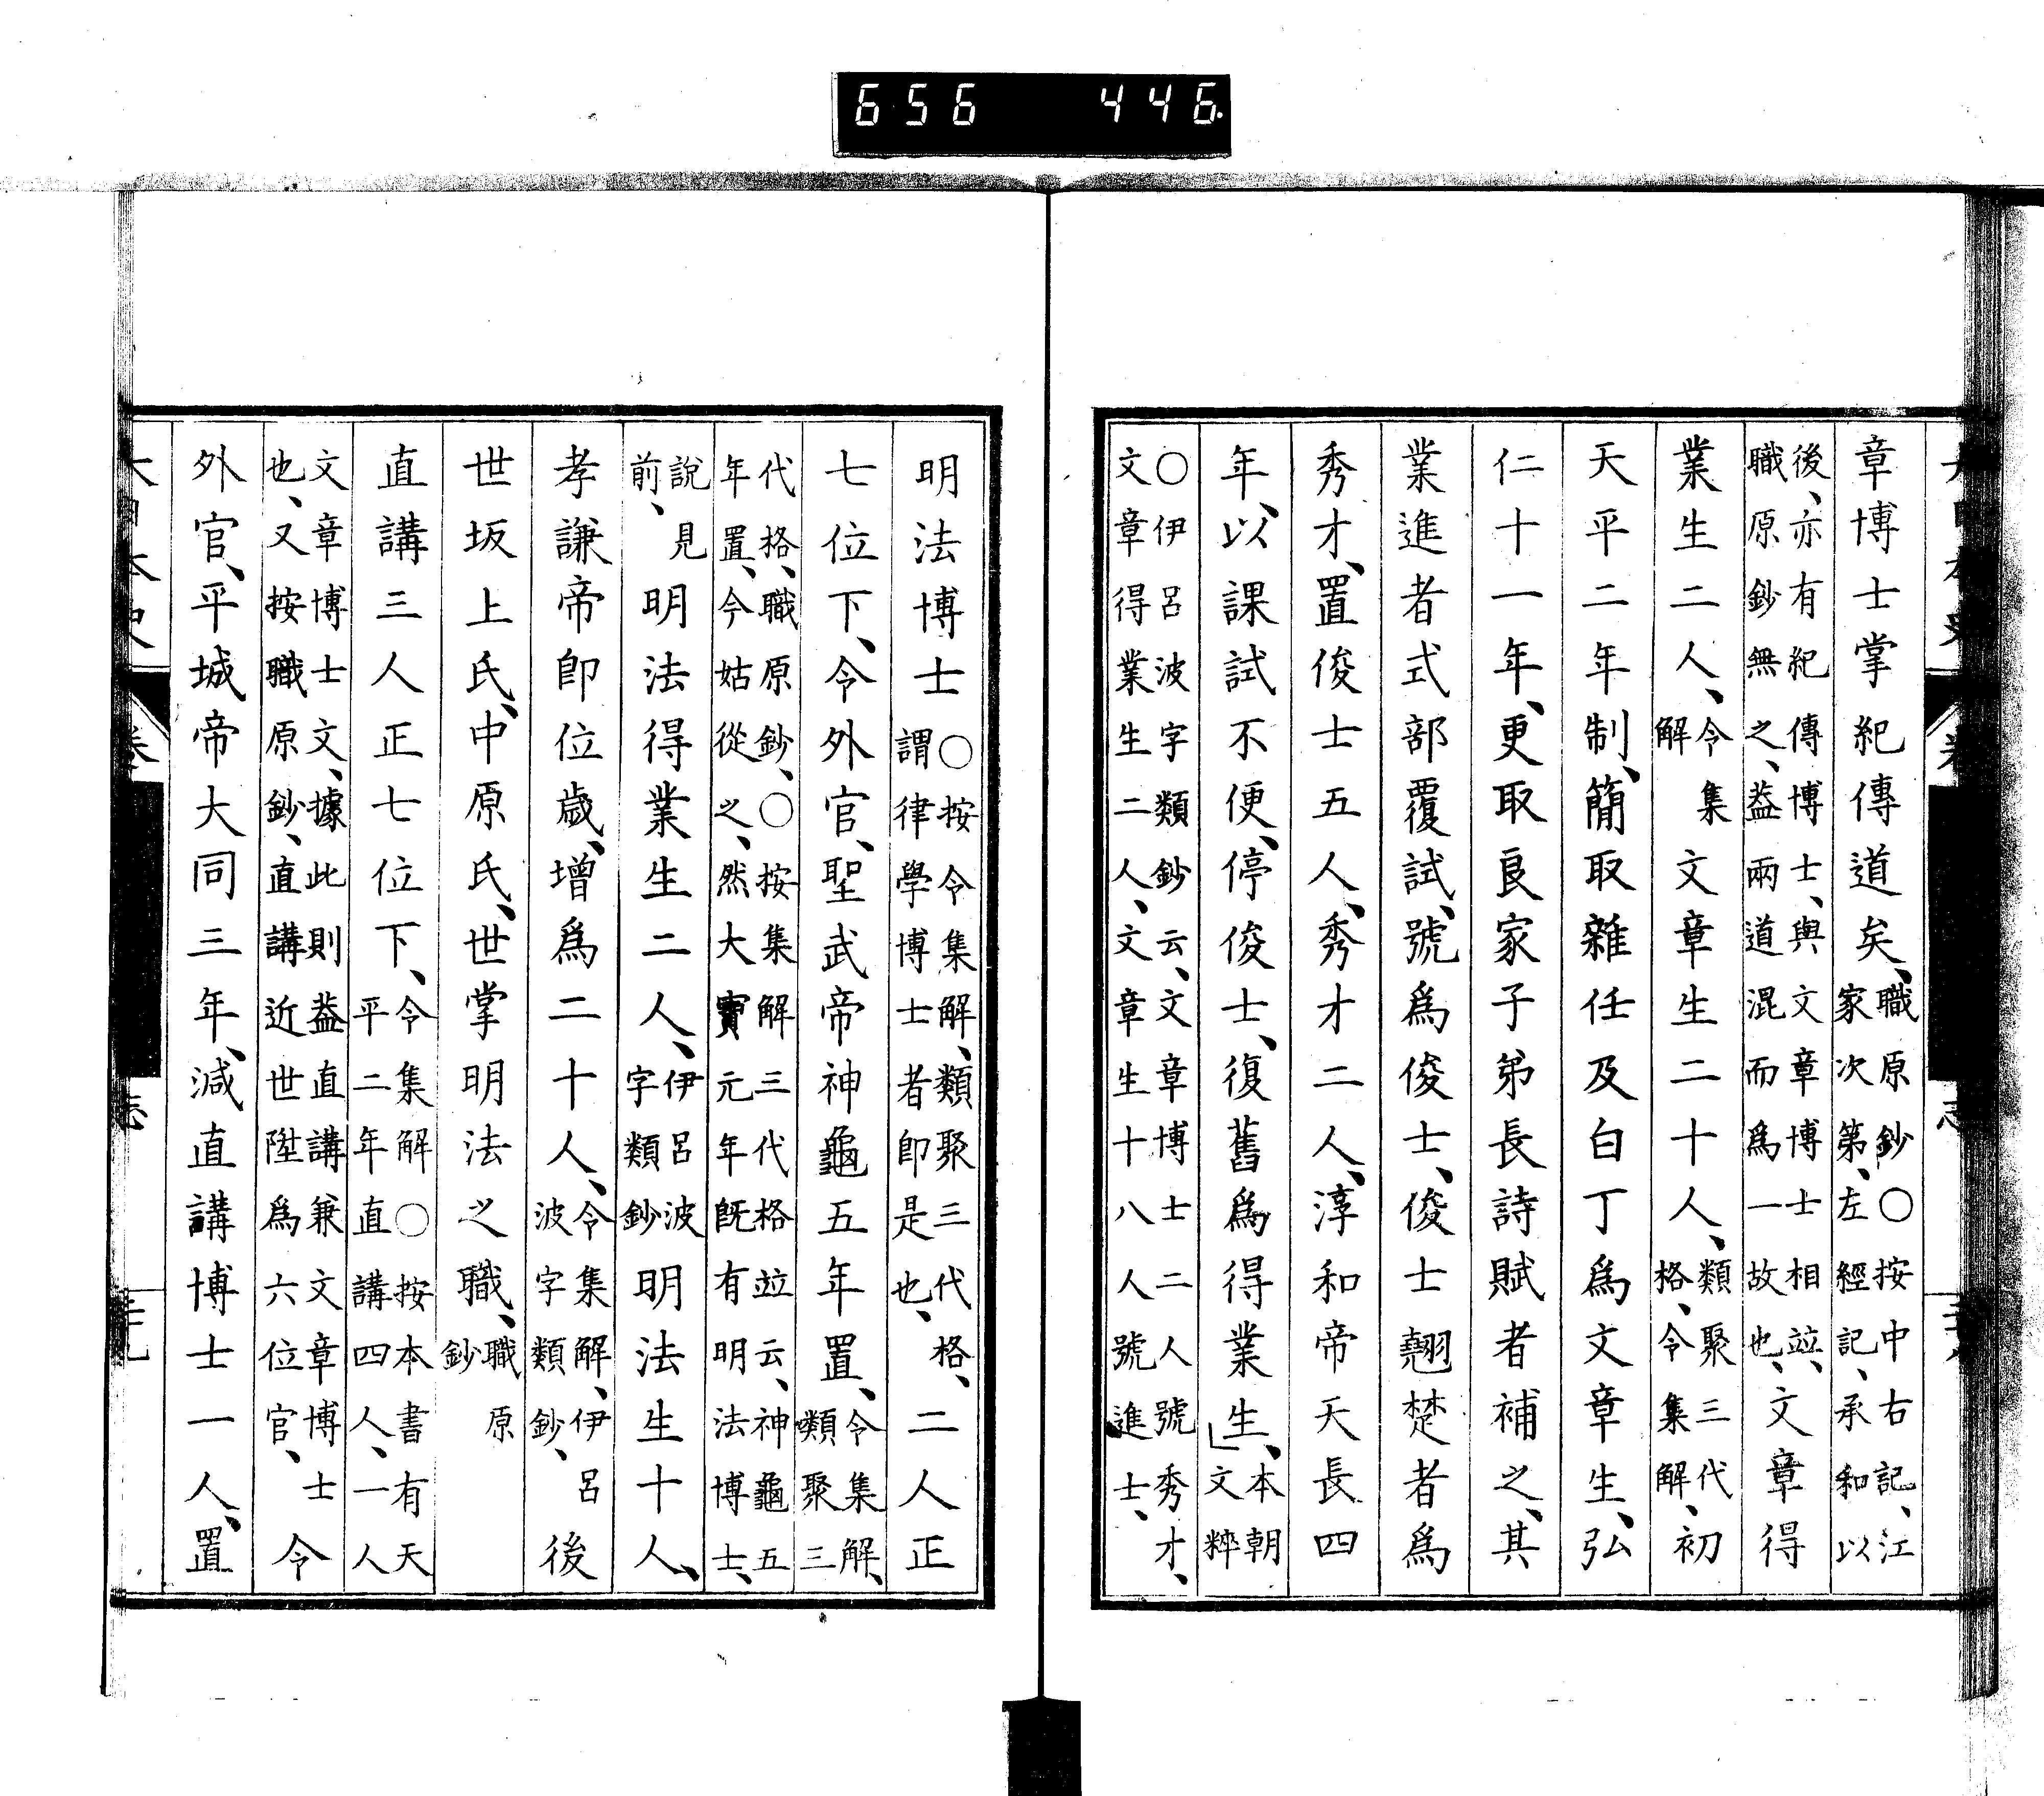 656 446.
章博士掌紀傳道矣、職原鈔○按中右記、江家次第、左經記、承和以
後、亦有紀傳博士、與文章博士相竝、職原鈔無之、葢兩道混而爲一故也、文章得
業生二人、令集解文章生二十人、類聚三代格、令集解、初
天平二年制、簡取雜任及白丁爲文章生、弘
仁十一年、更取良家子弟長詩賦者補之、其
業進者式部覆試、號爲俊士、俊士翹楚者爲
秀才、置俊士五人、秀才二人、淳和帝天長四
年、以課試不便、停俊士、復舊爲得業生、」本朝文粹
○伊呂波字類鈔云、文章博士二人號秀才、文章得業生二人、文章生十八人號進士、
明法博士○按令集解、類聚三代格、謂律學博士者卽是也、二人正
七位下、令外官、聖武帝神龜五年置、令集解、類聚三
代格、職原鈔、○按集解三代格竝云、神龜五年置、今姑從之、然大寶元年既有明法博士、
說見前、明法得業生二人、伊呂波字類鈔明法生十人、
孝謙帝卽位歲、增爲二十人、令集解、伊呂波字類鈔、後
世坂上氏、中原氏、世掌明法之職、職原鈔
直講三人正七位下、令集解○按本書有天平二年直講四人、一人
文章博士文、據此則葢直講兼文章博士也、又按職原鈔、直講近世陞爲六位官、令
外官、平城帝大同三年、減直講博士一人、置